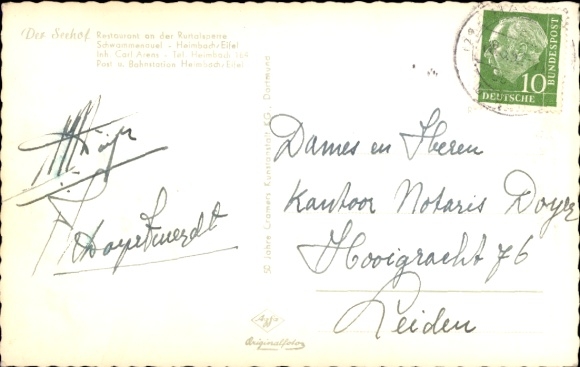 Der Seehof Restaurant an der Rurtalsperre
Schwammenauel - Heimbach-Eifel
Inh. Carl Arens - Tel. Heimbach
Post u. Bahnstation Heimbach-Eifel
10
DEUTSCHE
BUNDESPOST
50 Jahre Cramers Kunstanstalt KG., Dortmund
Dames en Heeren
Kantoor Notaris Doyer
Hooigracht 76
Leiden
Agfa
Originalfoto